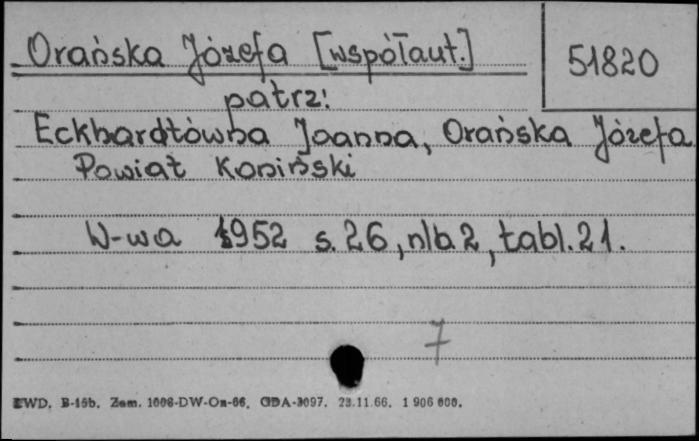 Orańska Józefa [współaut.]
51820
patrz:
Eckhardtówna Joanna, Orańska Józefa
Powiat Koniński
W-wa 1952 s. 26, nlb. 2, tabl. 21.
7
EWD. B-15b. Zam. 1008-DW-Oz-66. GDA-3097. 23.11.66. 1 906 000.